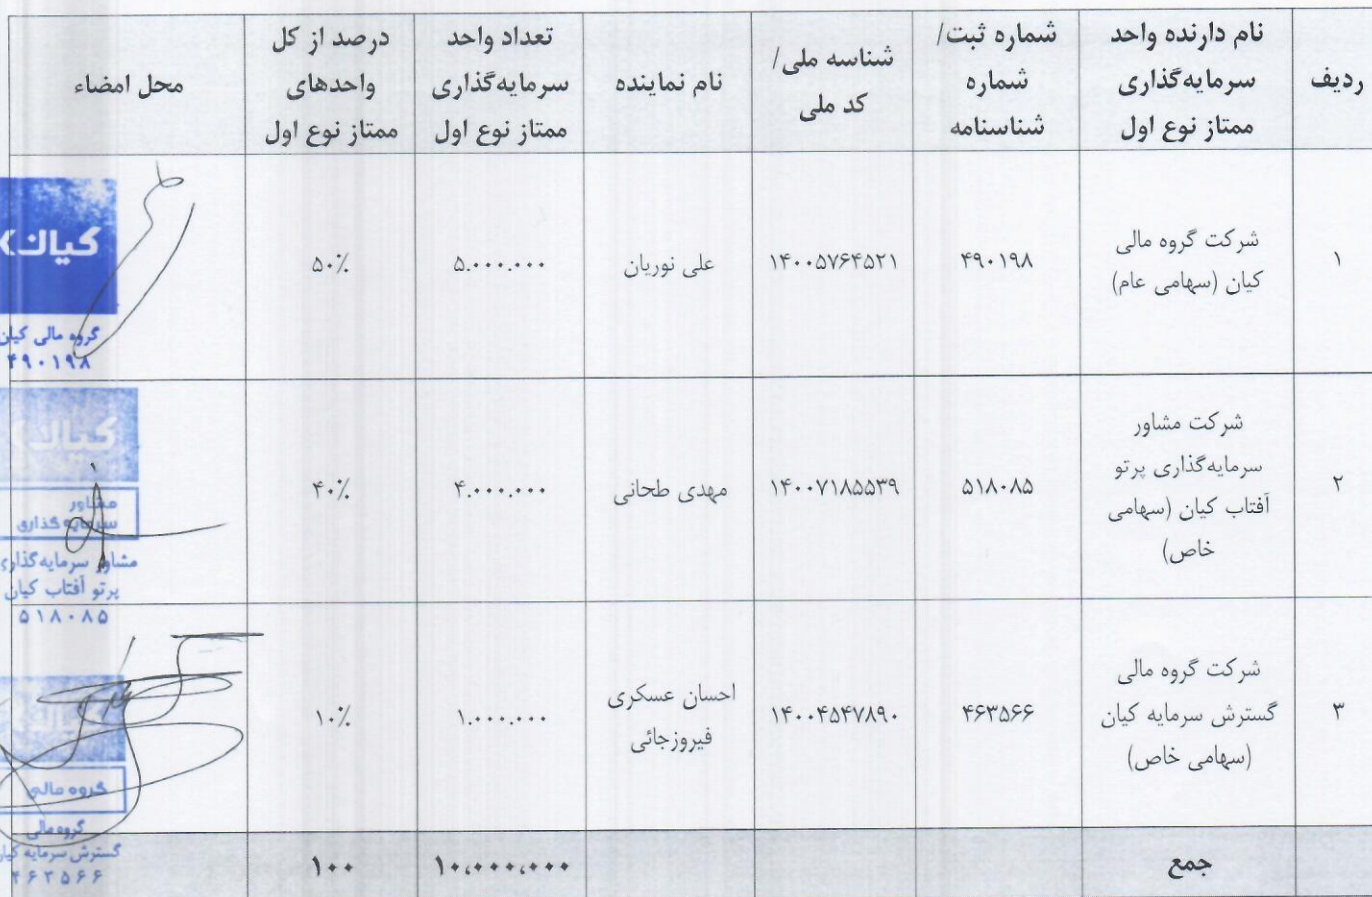 ردیف
نام دارنده واحد
سرمایه‌گذاری
ممتاز نوع اول
شماره ثبت/
شماره
شناسنامه
شناسه ملی/
کد ملی
نام نماینده
تعداد واحد
سرمایه‌گذاری
ممتاز نوع اول
درصد از کل
واحدهای
ممتاز نوع اول
محل امضاء
۱
شرکت گروه مالی
کیان (سهامی عام)
۴۹۰۱۹۸
۱۴۰۰۵۷۶۴۵۲۱
علی نوریان
۵.۰۰۰.۰۰۰
۵۰٪
کیان
گروه مالی کیان
۴۹۰۱۹۸
۲
شرکت مشاور
سرمایه‌گذاری پرتو
آفتاب کیان (سهامی
خاص)
۵۱۸۰۸۵
۱۴۰۰۷۱۸۵۵۳۹
مهدی طحانی
۴.۰۰۰.۰۰۰
۴۰٪
کیان
مشاور
سرمایه گذاری
مشاور سرمایه گذاری
پرتو آفتاب کیان
۵۱۸۰۸۵
۳
شرکت گروه مالی
گسترش سرمایه کیان
(سهامی خاص)
۴۶۳۵۶۶
۱۴۰۰۴۵۴۷۸۹۰
احسان عسکری
فیروزجائی
۱.۰۰۰.۰۰۰
۱۰٪
گروه مالی
گروه مالی
گسترش سرمایه کیان
۴۶۳۵۶۶
جمع
۱۰،۰۰۰،۰۰۰
۱۰۰